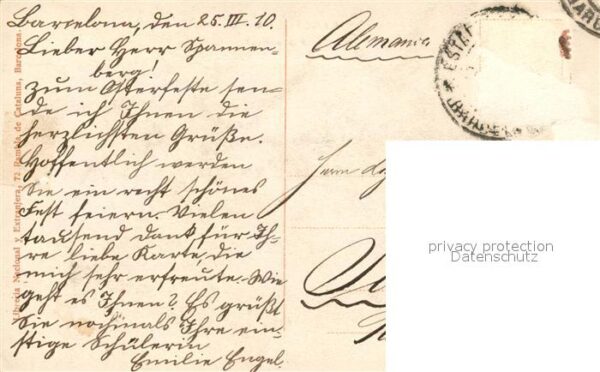 Barcelona, den 25. III. 10.
Lieber Herr Spannen-
berg!
Zum Osterfeste sen-
de ich Ihnen die
herzlichsten Grüße.
Hoffentlich werden
Sie ein recht schönes
Fest feiern. Vielen
tausend Dank für Ih-
re liebe Karte, die
mich sehr erfreute. Wie
geht es Ihnen? Es grüßt
Sie nochmals Ihre ein-
stige Schülerin
Emilie Engel
Nacional y Extranjera, 72 de Cataluna, Barcelona.
Alemania
Herrn
privacy protection
Datenschutz